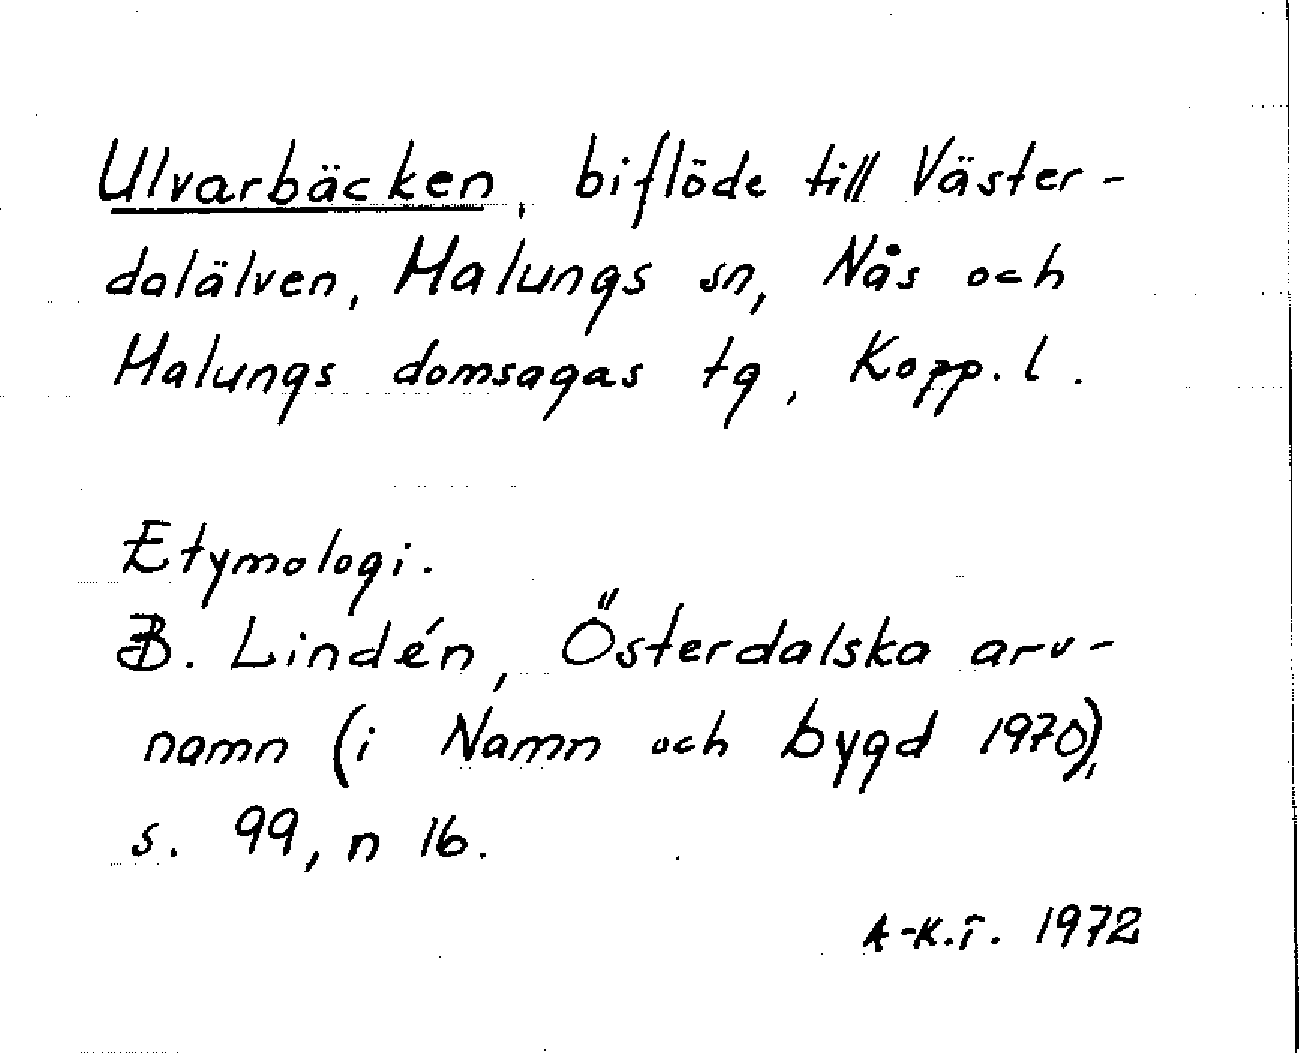 Ulvarbäcken, biflöde till Väster-
dalälven, Malungs sn, Nås och
Malungs domsagas tg, Kopp. l.
Etymologi.
B. Lindén, Österdalska arv-
namn (i Namn och bygd 1970),
s. 99, n 16.
A-K.T. 1972